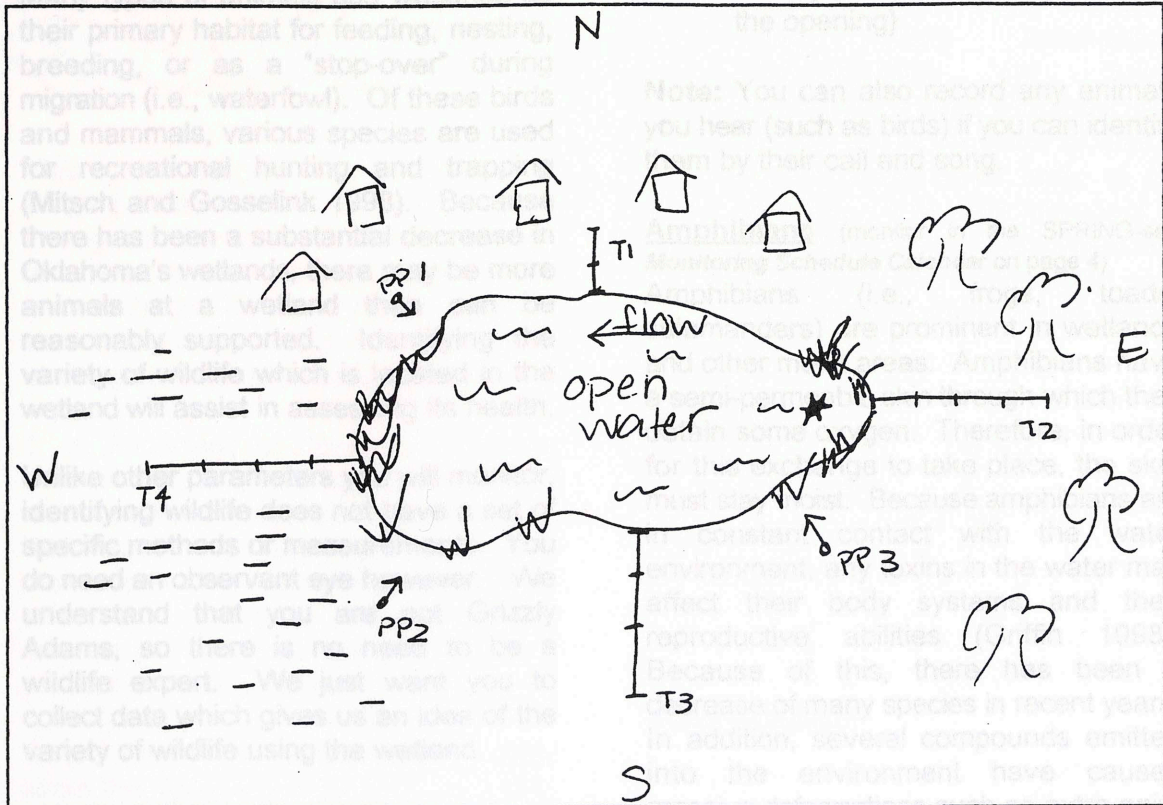 N
T1
PP1
flow
open
water
E
T2
W
T4
PP3
PP2
T3
S
their primary habitat for feeding, nesting,
breeding, or as a "stop-over" during
migration (i.e., waterfowl). Of these birds
and mammals, various species are used
for recreational hunting and trapping
(Mitsch and Gosselink 1993). Because
there has been a substantial decrease in
Oklahoma's wetlands, there may be more
animals at a wetland than can be
reasonably supported. Identifying the
variety of wildlife which is located in the
wetland will assist in assessing its health.
Unlike other parameters you will monitor,
identifying wildlife does not have a set of
specific methods of measurement. You
do need an observant eye however. We
understand that you are not Grizzly
Adams, so there is no need to be a
wildlife expert. We just want you to
collect data which gives us an idea of the
variety of wildlife using the wetland.
the opening)
Note: You can also record any animal
you hear (such as birds) if you can identify
them by their call and song.
Amphibians (monitor in the SPRING-see
Monitoring Schedule Calendar on page 4)
Amphibians (i.e., frogs, toads
salamanders) are prominent in wetland
and other moist areas. Amphibians have
semi-permeable skin through which they
obtain some oxygen. Therefore, in order
for this exchange to take place, the skin
must stay moist. Because amphibians are
in constant contact with the water
environment, any toxins in the water may
affect their body systems and their
reproductive abilities (Griffin 1998
Because of this, there has been
decrease of many species in recent year
In addition, several compounds emitte
into the environment have cause